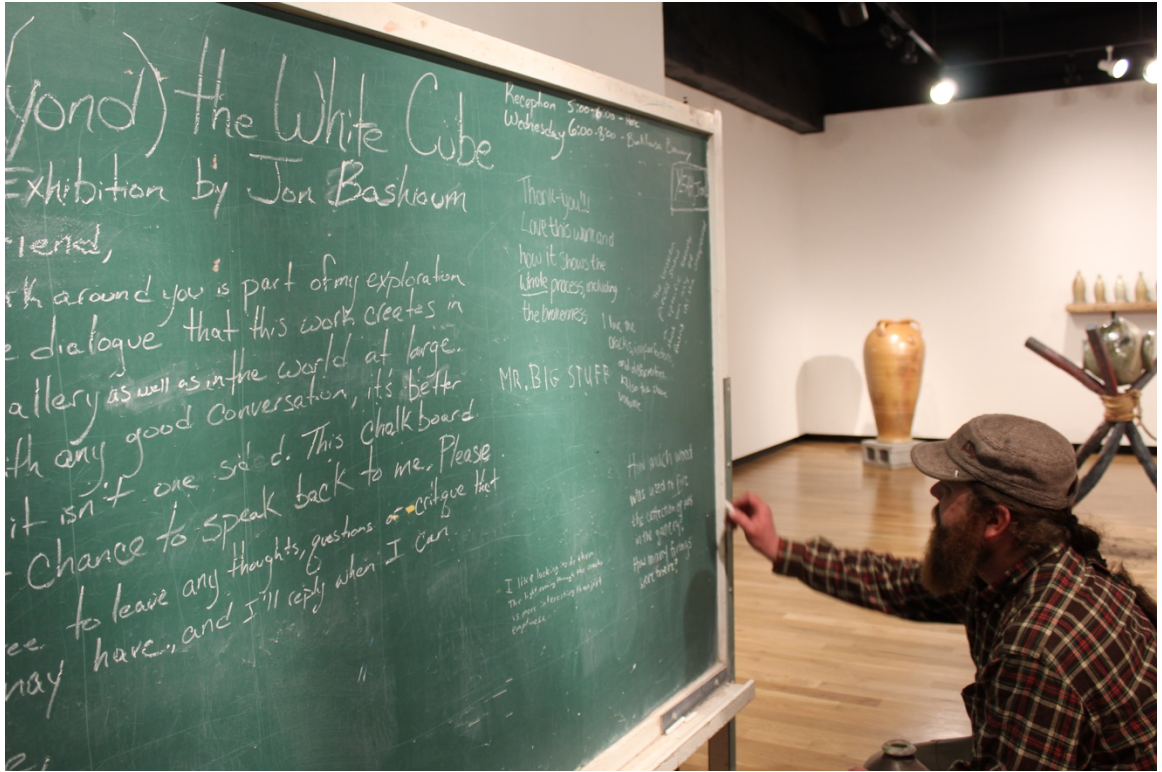 yond) the White Cube
Exhibition by Jon Bashioum
riend,
rk around you is part of my exploration
e dialogue that this work creates in
allery as well as in the world at large.
ith any good conversation, it's better
it isn't one sided. This chalkboard
chance to speak back to me. Please
ee to leave any thoughts, questions or critque that
may have, and I'll reply when I can.
Reception 5:00-6:00 -
Wednesday 6:00-8:00 -
Thank-you!!!
Love this work and
how it shows the
whole process, including
the brokenness
I like the
cracks, imperfections
and
MR. BIG STUFF
How much wood
was used to fire
the collection of work
in the gallery?
How many firings
were there?
I like looking
The light coming through the cracks
is more interesting than just
emptiness